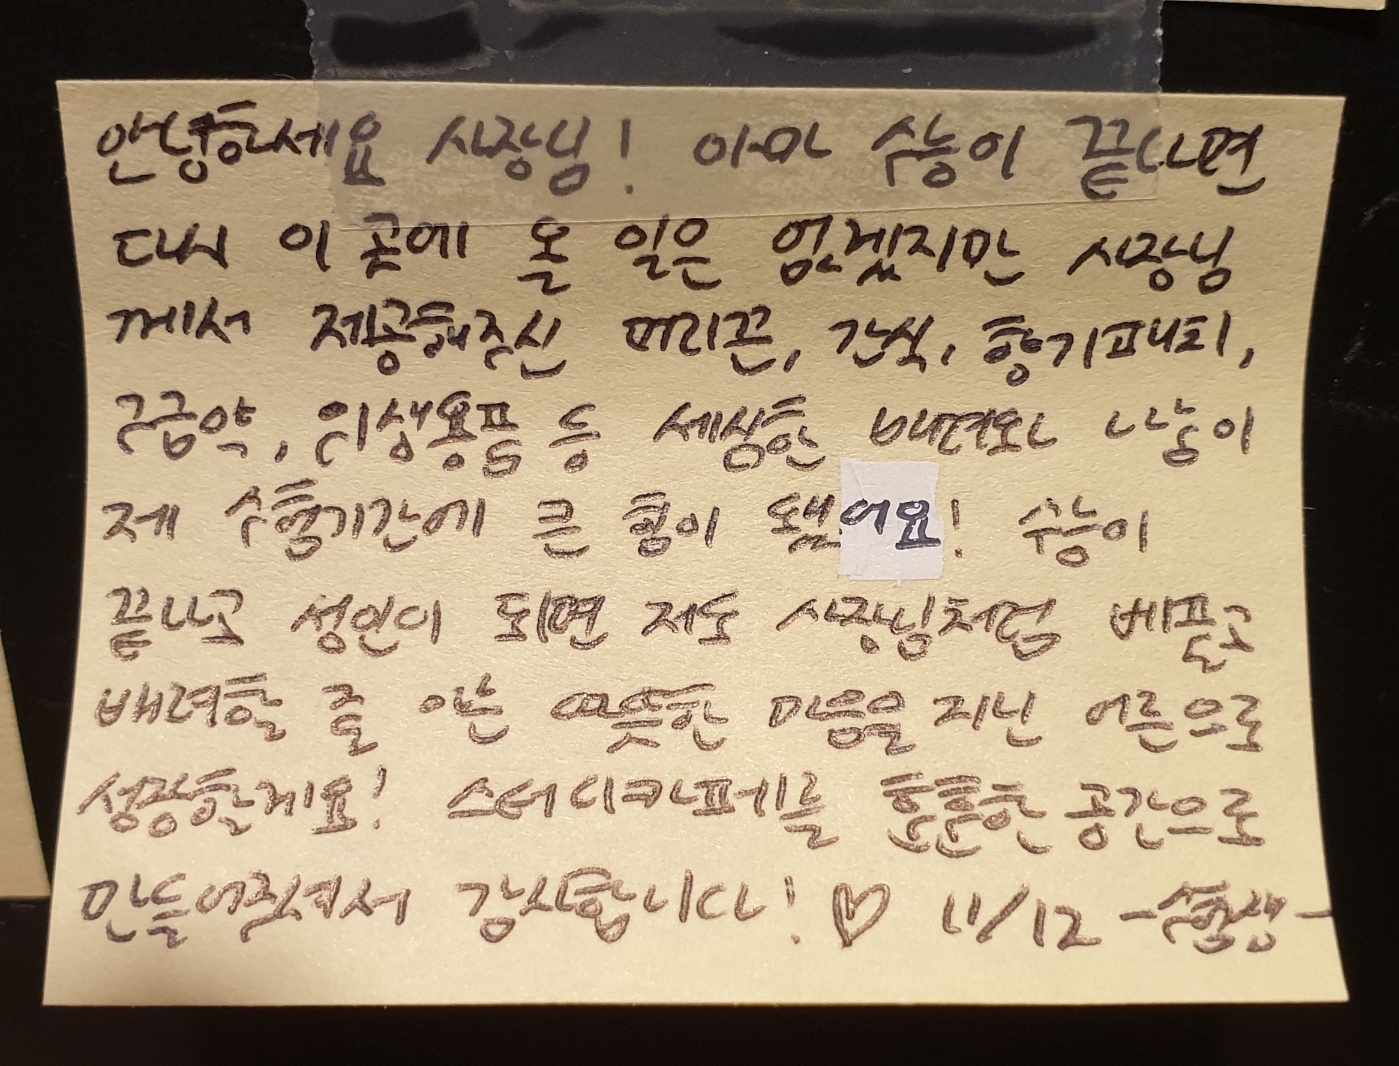 안녕하세요 사장님! 아마 수능이 끝나면
다시 이 곳에 올 일은 없겠지만 사장님
께서 제공해주신 머리끈, 간식, 향기패치,
구급약, 위생용품 등 세심한 배려와 나눔이
제 수험기간에 큰 힘이 됐어요! 수능이
끝나고 성인이 되면 저도 사장님처럼 베풀고
배려할 줄 아는 따뜻한 마음을 지닌 어른으로
성장할게요! 스터디카페를 훈훈한 공간으로
만들어주셔서 감사합니다! ♡ 11/12 -수험생-